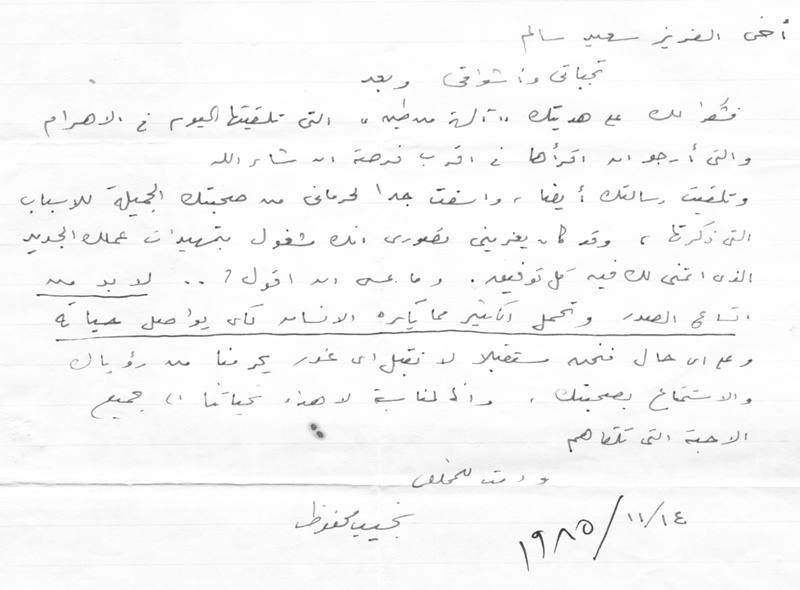 أخى العزيز سعيد سالم
تحياتى وأشواقى وبعد
فشكرا لك على هديتك "آلهة من طين" التى تلقيتها اليوم فى الاهرام
والتى أرجو ان اقرأها فى اقرب فرصة ان شاء الله
وتلقيت رسالتك أيضا، واسفت جدا لحرمانى من صحبتك الجميلة للاسباب
التى ذكرتها، وقد كان يعزينى تصورى انك مشغول بتمهيدات عملك الجديد
الذى اتمنى لك فيه كل توفيق. وما عسى ان اقول؟ .. لا بد من
اتساع الصدر وتحمل الكثير مما يكره الانسان كى يواصل حياته
وعلى اى حال فنحن مستقبلا لا نقبل اى عذر يحرمنا من رؤياك
والاستمتاع بصحبتك، وبالمناسبة لاهداء تحياتنا الى جميع
الاحبة التى تلقاهم
ودمت للمخلص
نجيب محفوظ
١٩٨٥/١١/١٤